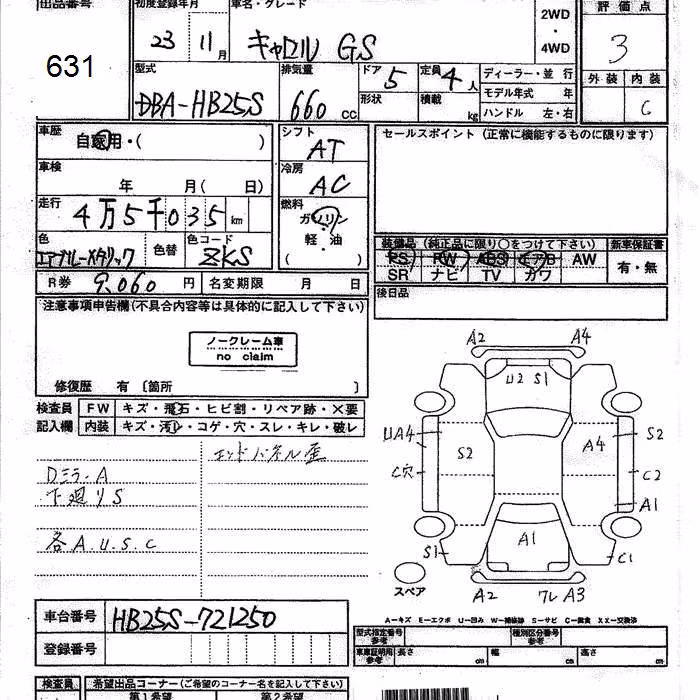 出品番号 初度登録年月 車名・グレード 評価点
631 23 11月 キャロル GS 2WD・4WD 3
型式 排気量 ドア 5 定員 4人 ディーラー・並行 外装 内装
DBA-HB25S 660cc 形状 積載 kg モデル年式 年 C
ハンドル 左・右
車歴 自家用・( ) シフト AT セールスポイント (正常に機能するものに限ります)
車検 年 月(日) 冷房 AC
走行 4万5千035km 燃料 ガソリン
軽・油
( )
色 エアブルーメタリック 色替 色コード ZKS
装備品 (純正品に限り○をつけて下さい) 新車保証書
PS PW ABS エアB AW 有・無
SR ナビ TV カワ
R券 9,060円 名変期限 月 日 後日品
注意事項申告欄(不具合内容等は具体的に記入して下さい)
ノークレーム車
no claim
修復歴 有 〔箇所 〕
検査員 FW キズ・飛石・ヒビ割・リペア跡・×要
記入欄 内装 キズ・汚レ・コゲ・穴・スレ・キレ・破レ
エンドパネル歪
Dミラー A
下廻り S
各 A.U.S.C
A2 A4
U2 S1
UA4 S2 A4 S2
C穴 C2
A1
S1 A1 C1
スペア A2 ワレ A3
A−キズ E−エクボ U−凹み W−補修跡 S−サビ C−腐食 XX−交換済
車台番号 HB25S-721250
登録番号
型式指定番号 参考 種別区分番号 参考
車庫証明用 参考 長さ cm 幅 cm 高さ cm
検査員 希望出品コーナー(ご希望のコーナー名を記入下さい)
第1希望 第2希望